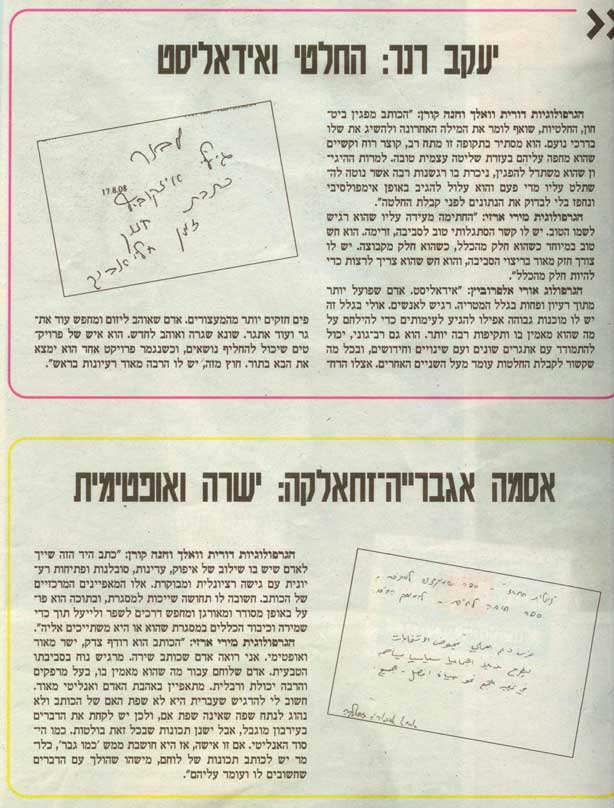 יעקב רנר: החלטי ואידאליסט
הגרפולוגיות דורית וואלך וחנה קורן: "הכותב מפגין ביט־
חון, החלטיות, שואף לומר את המילה האחרונה ולהשיג את שלו
בדרכי נועם. הוא מסתיר בתקופה זו מתח רב, קוצר רוח וקשיים
שהוא מחפה עליהם בעזרת שליטה עצמית טובה. למרות ההיגי־
ון שהוא משתדל להפגין, ניכרת בו רגשנות רבה אשר נוטה לה־
שתלט עליו מדי פעם והוא עלול להגיב באופן אימפולסיבי
ונחפז בלי לבדוק את הנתונים לפני קבלת החלטה".
הגרפולוגית מירי ארזי: "החתימה מעידה עליו שהוא רגיש
לשמו הטוב. יש לו קשר הסתגלותי טוב לסביבה, זרימה. הוא חש
טוב במיוחד כשהוא חלק מהכלל, כשהוא חלק מקבוצה. יש לו
צורך חזק מאוד בריצוי הסביבה, והוא חש שהוא צריך לרצות כדי
להיות חלק מהכלל".
הגרפולוג אורי אלפרוביץ: "אידאליסט. אדם שפועל יותר
מתוך רעיון ופחות בגלל המטריה. רגיש לאנשים. אולי בגלל זה
יש לו מוכנות גבוהה אפילו להגיע לעימותים כדי להילחם על
מה שהוא מאמין בו ותקיפות רבה יותר. הוא גם רב־גוני, יכול
להתמודד עם אתגרים שונים ועם שינויים וחידושים, ובכל מה
שקשור לקבלת החלטות עומד מעל השניים האחרים. אצלו הדח־
פים חזקים יותר מהמעצורים. אדם שאוהב ליזום ומחפש עוד את־
גר ועוד אתגר. שונא שגרה ואוהב לחדש. הוא איש של פרויק־
טים שיכול להחליף נושאים, וכשנגמר פרויקט אחד הוא ימצא
את הבא בתור. חוץ מזה, יש לו הרבה מאוד רעיונות בראש".
לכבוד
17.8.08
תל אביב
אסמה אגברייה־זחאלקה: ישרה ואופטימית
הגרפולוגיות דורית וואלך וחנה קורן: "כתב היד הזה שייך
לאדם שיש בו שילוב של איפוק, עדינות, סובלנות ופתיחות רע־
יונית עם גישה רציונלית ומבוקרת. אלו המאפיינים המרכזיים
של הכותב. חשובה לו תחושה שייכות למסגרת, ובתוכה הוא פו־
על באופן מסודר ומאורגן ומחפש דרכים לשפר ולייעל תוך כדי
שמירה וכיבוד הכללים במסגרת שהוא או היא משתייכים אליה".
הגרפולוגית מירי ארזי: "הכותב הוא רודף צדק, ישר מאוד
ואופטימי. אני רואה אדם שכותב שירה. מרגיש נוח בסביבתו
הטבעית. אדם שלוחם עבור מה שהוא מאמין בו, בעל מרפקים
והרבה יכולת ורבלית. מתאפיין באהבת האדם ואנליטי מאוד.
חשוב לי להדגיש שעברית היא לא שפת האם של הכותב ולא
נהוג לנתח שפה שאינה שפת אם, ולכן יש לקחת את הדברים
בעירבון מוגבל, אבל ישנן תכונות שבכל זאת בולטות. כמו הי־
סוד האנליטי. אם זו אישה, אז היא חושבת ממש 'כמו גבר', כלו־
מר יש לכותב תכונות של לוחם, מישהו שהולך עם הדברים
שחשובים לו ועומד עליהם".